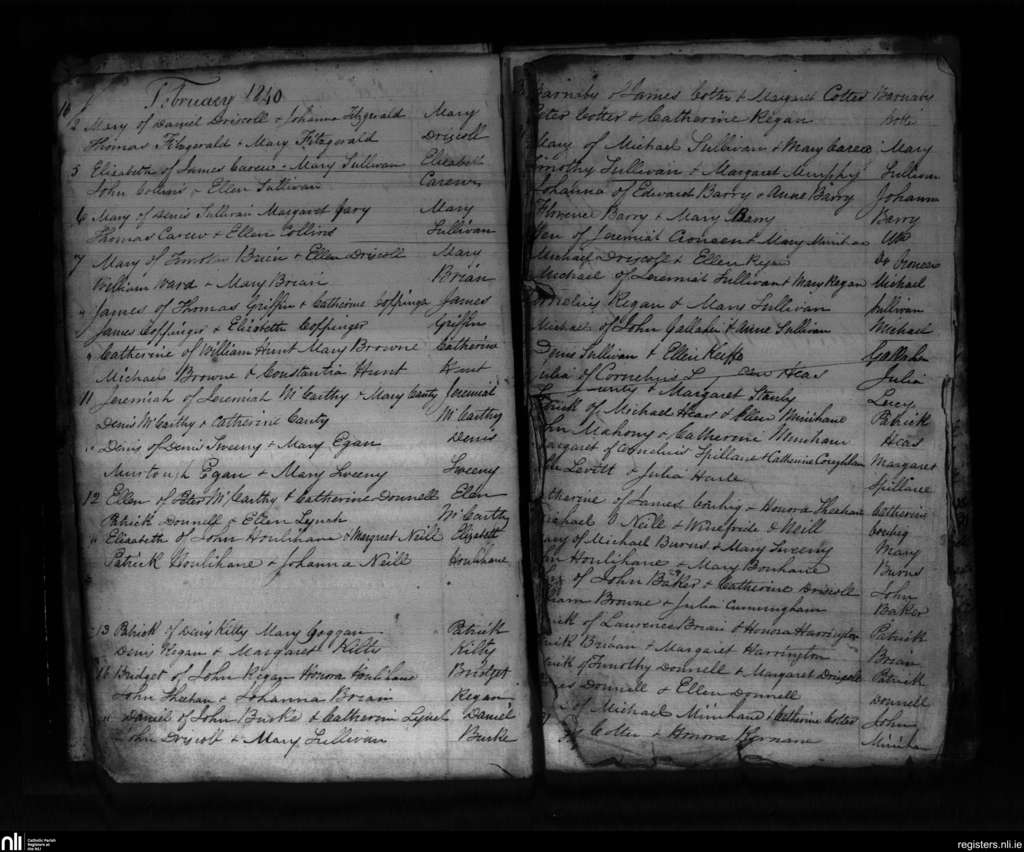 February 1840
2 Mary of Daniel Driscoll & Johanna Fitzgerald Mary
Thomas Fitzgerald & Mary Fitzgerald Driscoll
5 Elizabeth of James Carew - Mary Sullivan Elizabeth
John Collins & Ellen Sullivan Carew
6 Mary of Denis Sullivan Margaret Mary
Thomas Carew & Ellen Collins Sullivan
7 Mary of Timothy Brien & Ellen Driscoll Mary
William Ward & Mary Brian Brian
" James of Thomas Griffin & Catherine Coppinga James
James Coppinger & Elizabeth Coppinger Griffin
" Catherine of William Hunt Mary Browne Catherine
Michael Browne & Constantia Hunt Hunt
11 Jeremiah of Jeremiah McCarthy & Mary Canty Jeremiah
Denis McCarthy & Catherine Canty McCarthy
" Denis of Denis Sweeny & Mary Egan Denis
Murtough Egan & Mary Sweeny Sweeny
12 Ellen of Peter McCarthy & Catherine Donnell Ellen
Patrick Donnell & Ellen Lynch McCarthy
" Elizabeth of John Houlihane & Margreet Neill Elizabeth
Patrick Houlihane & Johanna Neill Houlihane
13 Patrick of Denis Kilty Mary Goggan Patrick
Denis Regan & Margaret Kilty Kilty
16 Bridget of John Regan Honora Houlihane Bridget
John Sheehan & Johanna Brian Regan
" Daniel of John Burke & Catherine Lynch Daniel
John Driscoll & Mary Sullivan Burke
Barnaby of James Cotter & Margaret Cotter Barnaby
Peter Cotter & Catherine Regan Cotter
Mary of Michael Sullivan & Mary Carew Mary
Timothy Sullivan & Margaret Murphy Sullivan
Johanna of Edward Barry & Anne Barry Johanna
Florence Barry & Mary Barry Barry
of Jeremiah Croneen & Mary
Michael Driscoll & Ellen Regan Croneen
Michael of Jeremiah Sullivan & Mary Regan Michael
Cornelius Regan & Mary Sullivan Sullivan
Michael of John Gallahir & Anne Sullivan Michael
Denis Sullivan & Ellen Keeffe Gallahir
Julia of Cornelius Heas Julia
& Margaret Stanly
Patrick of Michael Heas & Ellen Minihane Patrick
John Mahony & Catherine Minihane Heas
Margaret of Cornelius Spillane & Catherine Coughlan Margaret
Levitt & Julia Spillane
Catherine of James & Honora Sheehan Catherine
Michael O Neill & Winefride O Neill
Mary of Michael Burns & Mary Sweeny Mary
John Houlihane & Mary Burns
John of John Baker & Catherine Driscoll John
William Browne & Julia Cunningham Baker
Patrick of Lawrence Brian & Honora Harrington Patrick
Patrick Brian & Margaret Harrington Brian
Patrick of Timothy Donnell & Margaret Driscoll Patrick
Donnell & Ellen Donnell Donnell
of Michael Minihane & Catherine Cotter John
Cotter & Honora Minihane
nli
Catholic Parish
Registers at
the NLI
registers.nli.ie